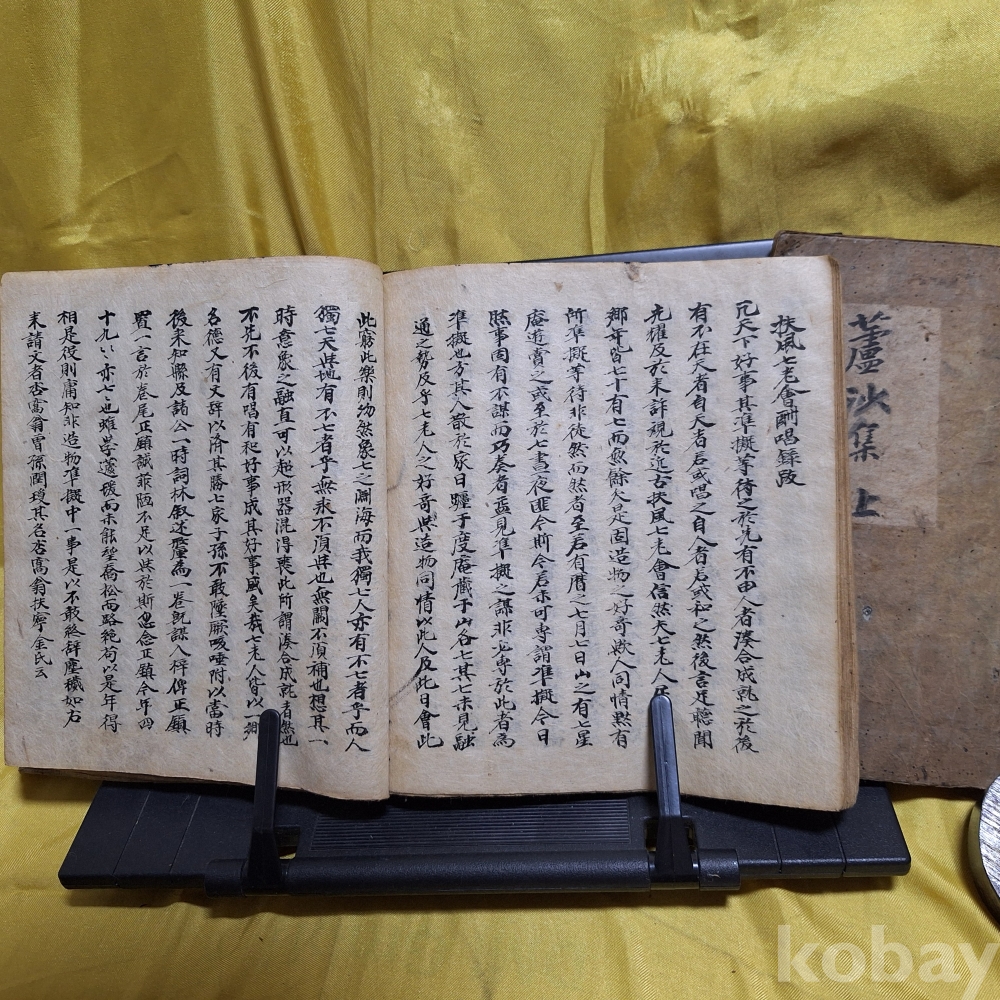 蘆沙集 上
扶風七老會酬唱錄跋
凡天下好事其準擬等待之於先有不由人者湊合成就之於後
有不在天者自天者君或唱之自人者君或和之然後言足聽聞
光耀及於來許視於近古扶風七老會信然夫七老人居
鄉年皆七十有七而無餘欠是固造物之好奇與人同情默有
所準擬等待非徒然而然者至若有曆之七月七日山之有七星
庵遊賞之或至於七晝夜匪今斯今君未可專謂準擬今日
然事固有不謀而巧奏者孟見準擬之謀非必專於此者為
準擬也方其人散於家日躔于度庵藏于山各七其七未見融
通之勢及乎七老人之好奇與造物同情以此人及此日會此
此窮此樂則物然象七之淵海而我獨七人亦有不七者乎而人
獨七天與地有不七者乎無求不須與也無闕不須補也想其一
時意象之融直可以超形器混得喪此所謂湊合成就者然也
不先不後有唱有和好事成其好事盛矣哉七老人皆以一鄉
名德又有文辭以濟其勝七家子孫不敢墜厥咳唾附以當時
後來知聯及諸公一時詞林叙述釐為一卷旣謀入梓俾正鎭
置一言於卷尾正鎭誠菲陋不足以與於斯忽念正鎭今年四
十九八亦七七也雖學蘧瑗而未能望喬松而路絶苟以是年得
相是役則庸知非造物準擬中一事是以不敢終辭塵穢如右
來請文者杏窩翁曾孫閏璞其名杏窩翁扶寧金氏云
kobay